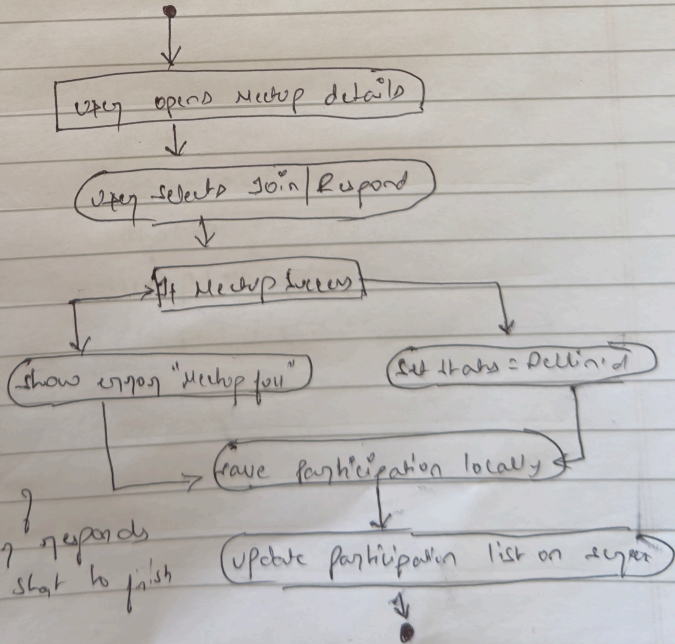 User opens Meetup details
User selects Join/Respond
If Meetup Success
Show error "Meetup full"
Set status = Declined
Save Participation locally
responds
start to finish
Update participation list on server